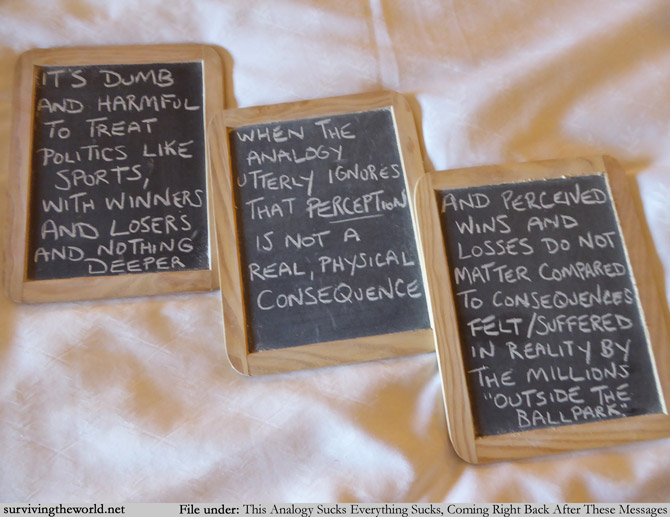 IT'S DUMB
AND HARMFUL
TO TREAT
POLITICS LIKE
SPORTS,
WITH WINNERS
AND LOSERS
AND NOTHING
DEEPER
WHEN THE
ANALOGY
UTTERLY IGNORES
THAT PERCEPTION
IS NOT A
REAL, PHYSICAL
CONSEQUENCE
AND PERCEIVED
WINS AND
LOSSES DO NOT
MATTER COMPARED
TO CONSEQUENCES
FELT/SUFFERED
IN REALITY BY
THE MILLIONS
"OUTSIDE THE
BALLPARK"
survivingtheworld.net File under: This Analogy Sucks Everything Sucks, Coming Right Back After These Messages